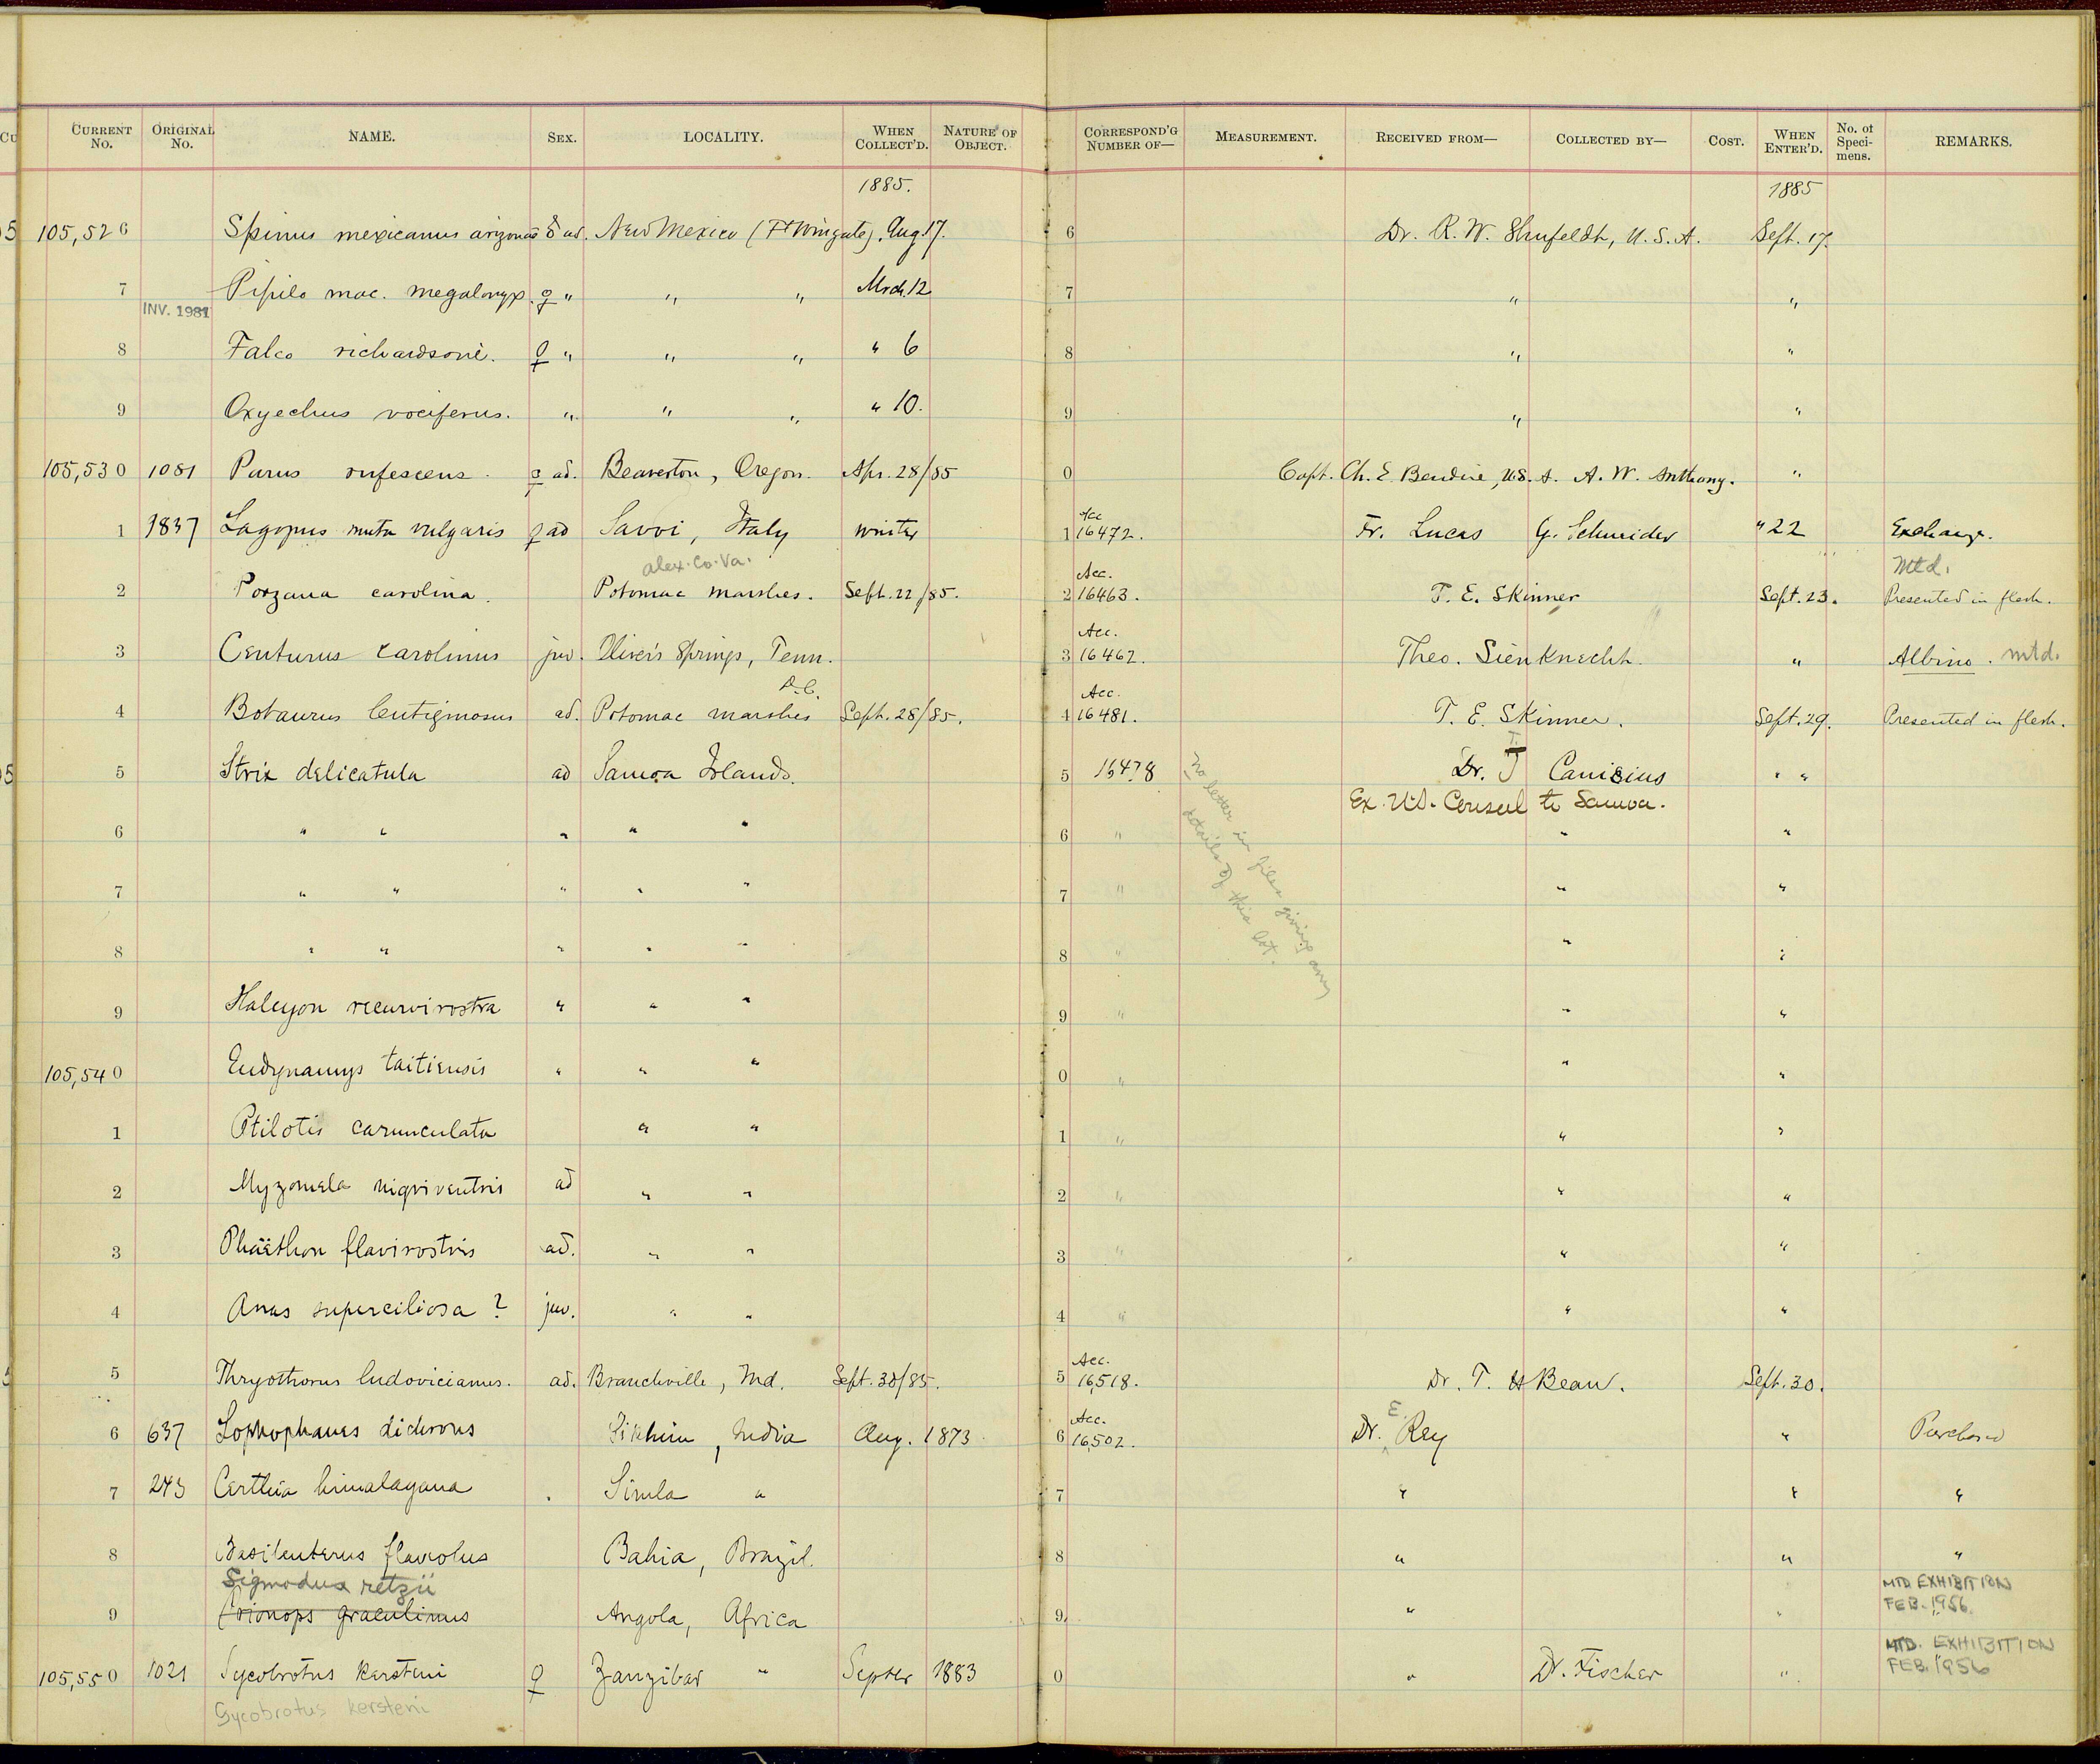 CURRENT No. ORIGINAL No. NAME. SEX. LOCALITY. WHEN COLLECT'D. NATURE OF OBJECT. CORRESPOND'G NUMBER OF— MEASUREMENT. RECEIVED FROM— COLLECTED BY— COST. WHEN ENTER'D. No. of Specimens. REMARKS.
1885. 1885
105,526 Spinus mexicanus arizonæ ♂ ad. New Mexico (Ft Wingate). Aug. 17. 6 Dr. R. W. Shufeldt, U.S.A. Sept. 17.
7 Pipilo mac. megalonyx. ♀ " " " Mrch. 12 7 " "
INV. 1981
8 Falco richardsoni. ♀ " " " " 6 8 " "
9 Oxyechus vociferus. " " " " 10. 9 " "
105,530 1081 Parus rufescens. ♀ ad. Beaverton, Oregon. Apr. 28/85 0 Capt. Ch. E. Bendire, U.S.A. A. W. Anthony. "
1 1837 Lagopus muta vulgaris ♀ ad Savoi, Italy winter 1 Acc 16472. Fr. Lucas G. Schneider " 22 Exchange.
alex. Co. Va. Mtd.
2 Porzana carolina. Potomac marshes. Sept. 22/85. 2 Acc. 16463. T. E. Skinner Sept. 23. Presented in flesh.
3 Centurus carolinus juv. Oliver's Springs, Tenn. 3 Acc. 16462. Theo. Sienknecht. " Albino. mtd.
D.C.
4 Botaurus lentiginosus ad. Potomac marshes Sept. 28/85. 4 Acc. 16481. T. E. Skinner. Sept. 29. Presented in flesh.
T.
5 Strix delicatula ad Samoa Islands. 5 16478 Dr. J Canisius " "
Ex. U.S. Consul to Samoa.
No letter in files giving any
details of this lot.
6 " " " " " 6 " " "
7 " " " " " 7 " " "
8 " " " " " 8 " " "
9 Halcyon recurvirostra " " " 9 " " "
105,540 Eudynamys taitiensis " " " 0 " " "
1 Ptilotis carunculata " " 1 " " "
2 Myzomela nigriventris ad " " 2 " " "
3 Phäethon flavirostris ad. " " 3 " " "
4 Anas superciliosa? juv. " " 4 " " "
5 Thryothorus ludovicianus. ad. Branchville, Md. Sept. 30/85. 5 Acc. 16,518. Dr. T. H Bean. Sept. 30.
E.
6 637 Lophophanes dichrous Sikhim, India Aug. 1873. 6 Acc. 16,502. Dr. Rey " Purchased
7 243 Certhia himalayana Simla " 7 " " "
8 Basileuterus flaveolus Bahia, Brazil. 8 " " "
Sigmodus retzii MTD EXHIBITION
9 Prionops graculinus Angola, Africa 9 " " FEB. 1956.
MTD. EXHIBITION
105,550 1021 Sycobrotus kersteni ♀ Zanzibar " Septer 1883 0 " Dr. Fischer " FEB. 1956
Sycobrotus kersteni